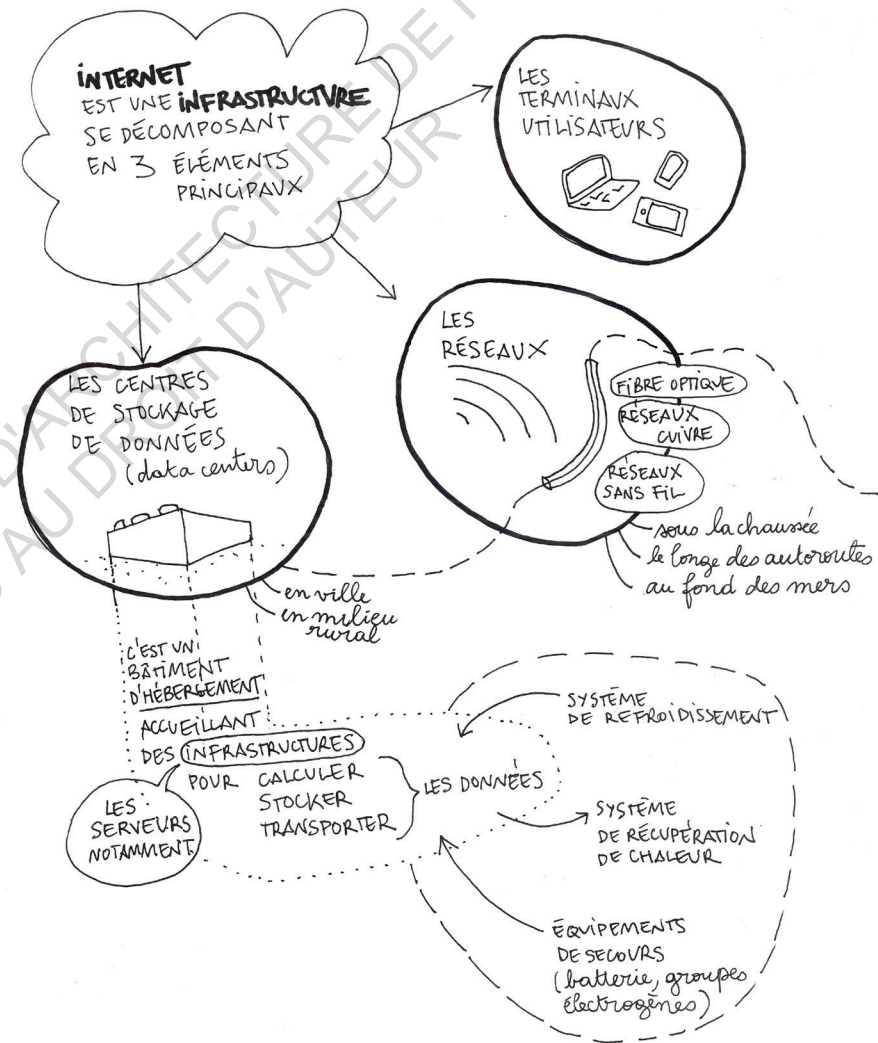 INTERNET
EST UNE INFRASTRUCTURE
SE DÉCOMPOSANT
EN 3 ÉLÉMENTS
PRINCIPAUX
LES
TERMINAUX
UTILISATEURS
LES
RÉSEAUX
FIBRE OPTIQUE
RÉSEAUX
CUIVRE
RÉSEAUX
SANS FIL
sous la chaussée
le longe des autoroutes
au fond des mers
LES CENTRES
DE STOCKAGE
DE DONNÉES
(data centers)
en ville
en milieu
rural
C'EST UN
BÂTIMENT
D'HÉBERGEMENT
ACCUEILLANT
DES INFRASTRUCTURES
POUR CALCULER
STOCKER
TRANSPORTER
LES DONNÉES
LES
SERVEURS
NOTAMMENT
SYSTÈME
DE REFROIDISSEMENT
SYSTÈME
DE RÉCUPÉRATION
DE CHALEUR
ÉQUIPEMENTS
DE SECOURS
(batterie, groupes
électrogènes)
D'ARCHITECTURE DE
AU DROIT D'AUTEUR